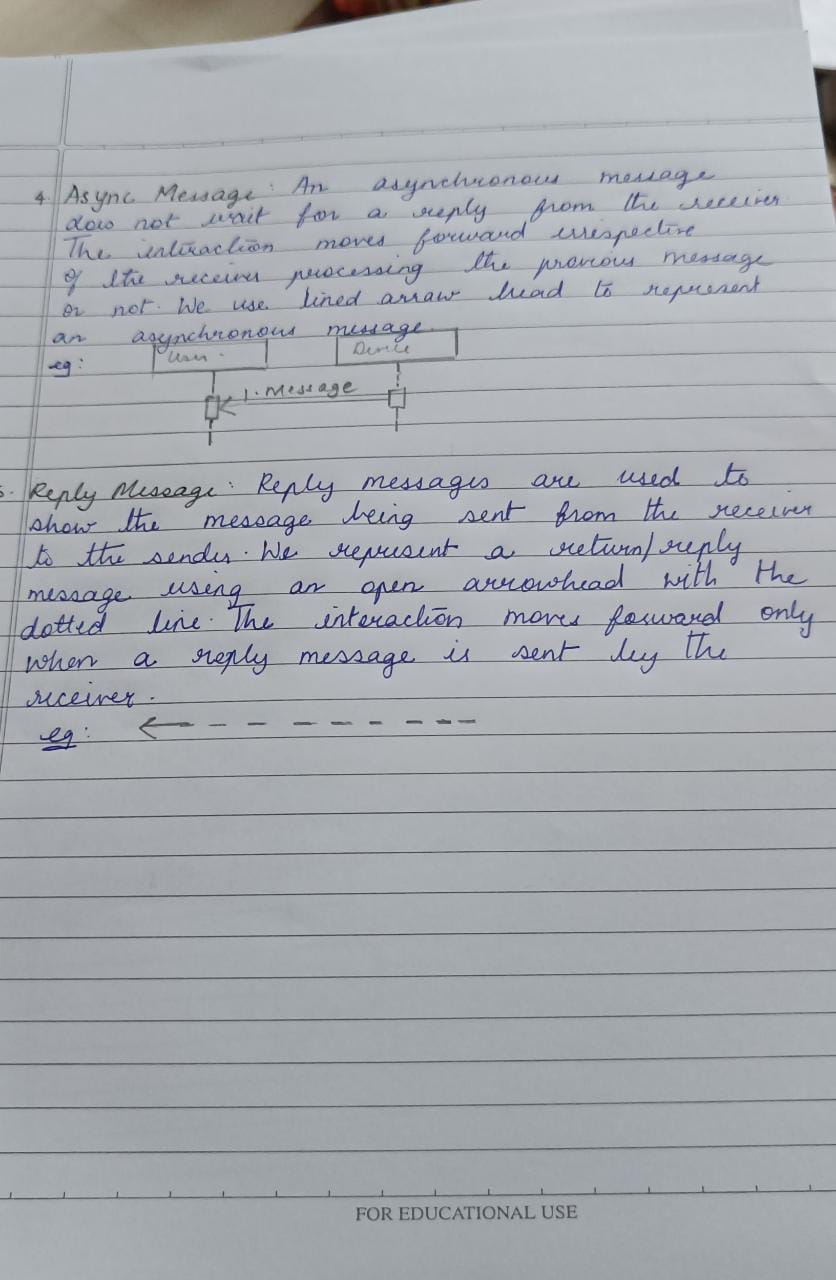 4. Async Message: An asynchronous message
does not wait for a reply from the receiver.
The interaction moves forward irrespective
of the receiver processing the previous message
or not. We use lined arraw head to represent
an asynchronous message.
eg: User. Device
1. Message
5. Reply Message: Reply messages are used to
show the message being sent from the receiver
to the sender. We represent a return/reply
message using an open arrowhead with the
dotted line. The interaction moves forward only
when a reply message is sent by the
receiver.
eg:
FOR EDUCATIONAL USE